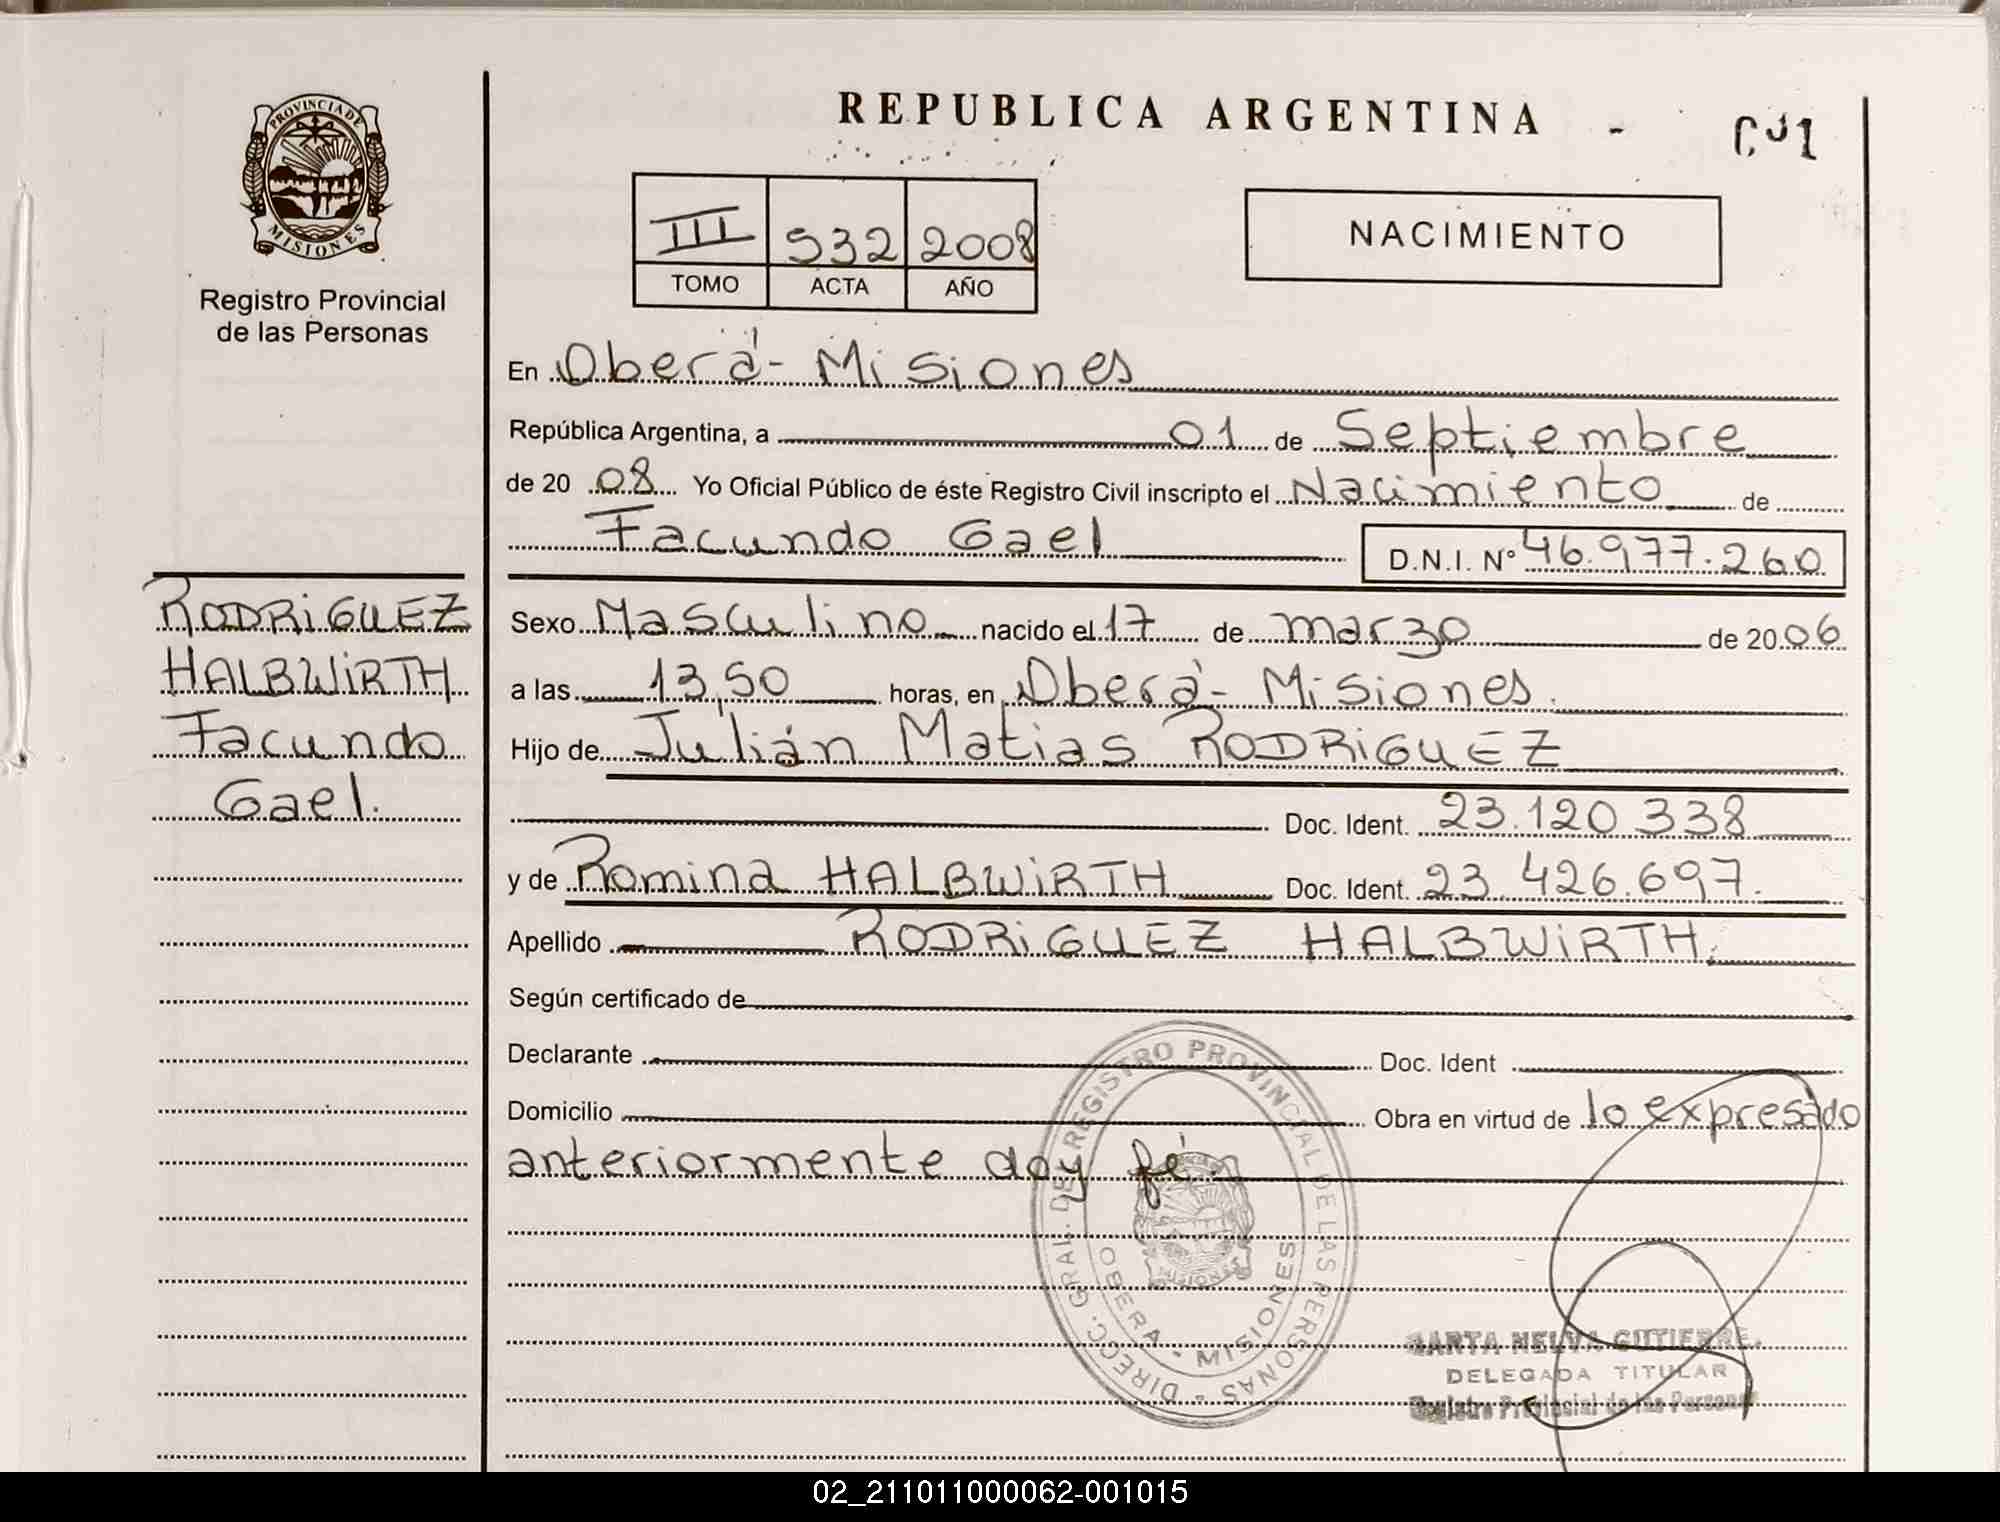 REPUBLICA ARGENTINA
PROVINCIA DE
MISIONES
Registro Provincial
de las Personas
III 532 2008
TOMO ACTA AÑO
NACIMIENTO
En Oberá - Misiones
República Argentina, a 01 de Septiembre
de 20 08 Yo Oficial Público de éste Registro Civil inscripto el Nacimiento de
Facundo Gael D.N.I. Nº 46.977.260
RODRIGUEZ
HALBWIRTH
Facundo
Gael.
Sexo Masculino nacido el 17 de marzo de 2006
a las 13,50 horas, en Oberá - Misiones.
Hijo de Julián Matias RODRIGUEZ
Doc. Ident. 23.120 338
y de Romina HALBWIRTH Doc. Ident. 23.426.697.
Apellido RODRIGUEZ HALBWIRTH.
Según certificado de
Declarante Doc. Ident
Domicilio Obra en virtud de lo expresado
anteriormente doy fé.
DIRECC. GRAL. DEL REGISTRO PROVINCIAL DE LAS PERSONAS
OBERA - MISIONES
NELVA GUTIERRE
DELEGADA TITULAR
Registro Provincial de las Personas
02_211011000062-001015